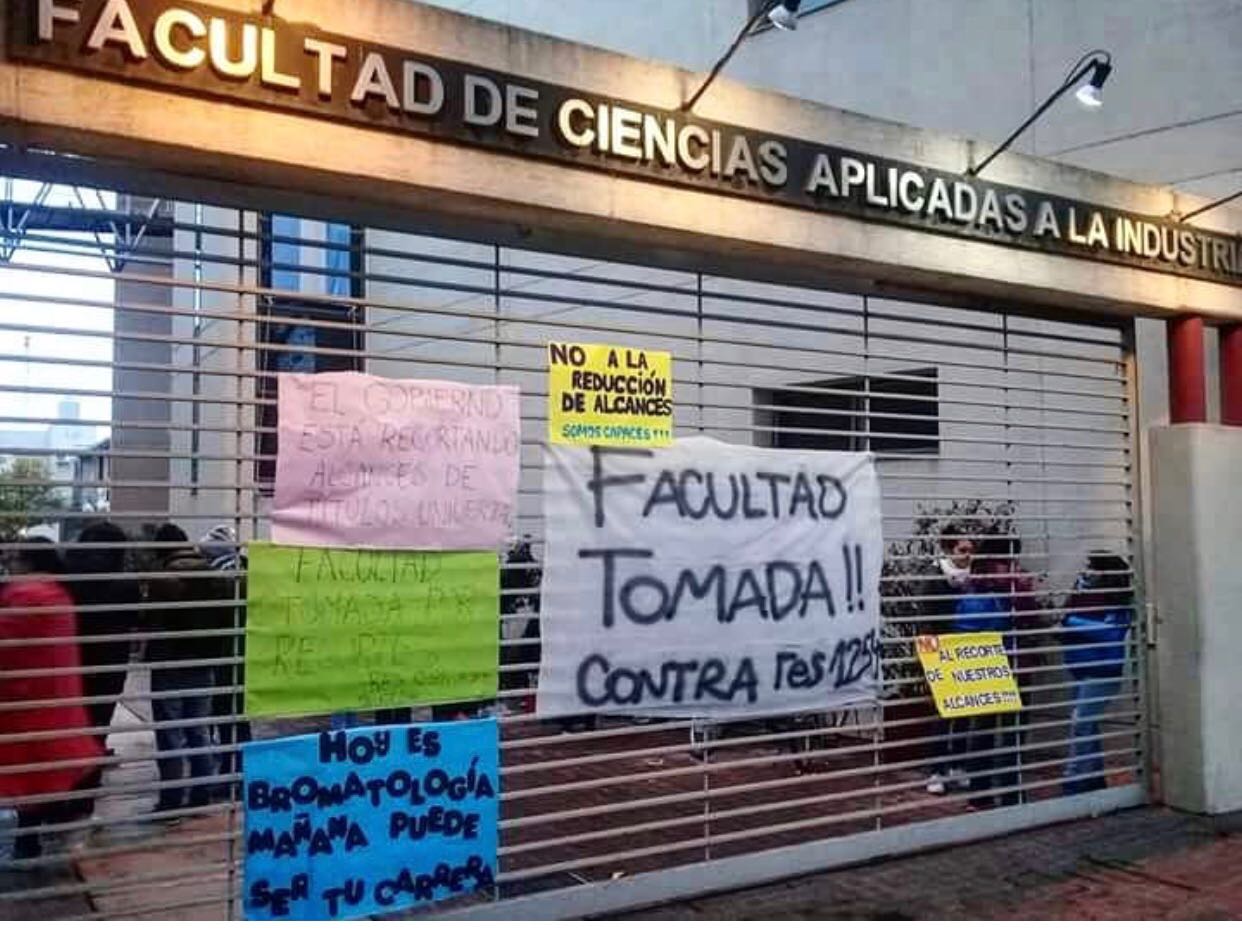 FACULTAD DE CIENCIAS APLICADAS A LA INDUSTRIA
NO A LA
REDUCCIÓN
DE ALCANCES
SOMOS CAPACES!!!
"EL GOBIERNO
ESTA RECORTANDO
ALCANCES DE
TITULOS
FACULTAD
TOMADA POR
FACULTAD
TOMADA!!
CONTRA res 1254
NO AL RECORTE
DE NUESTROS
ALCANCES!!!!
HOY ES
BROMATOLOGÍA
MAÑANA PUEDE
SER TU CARRERA